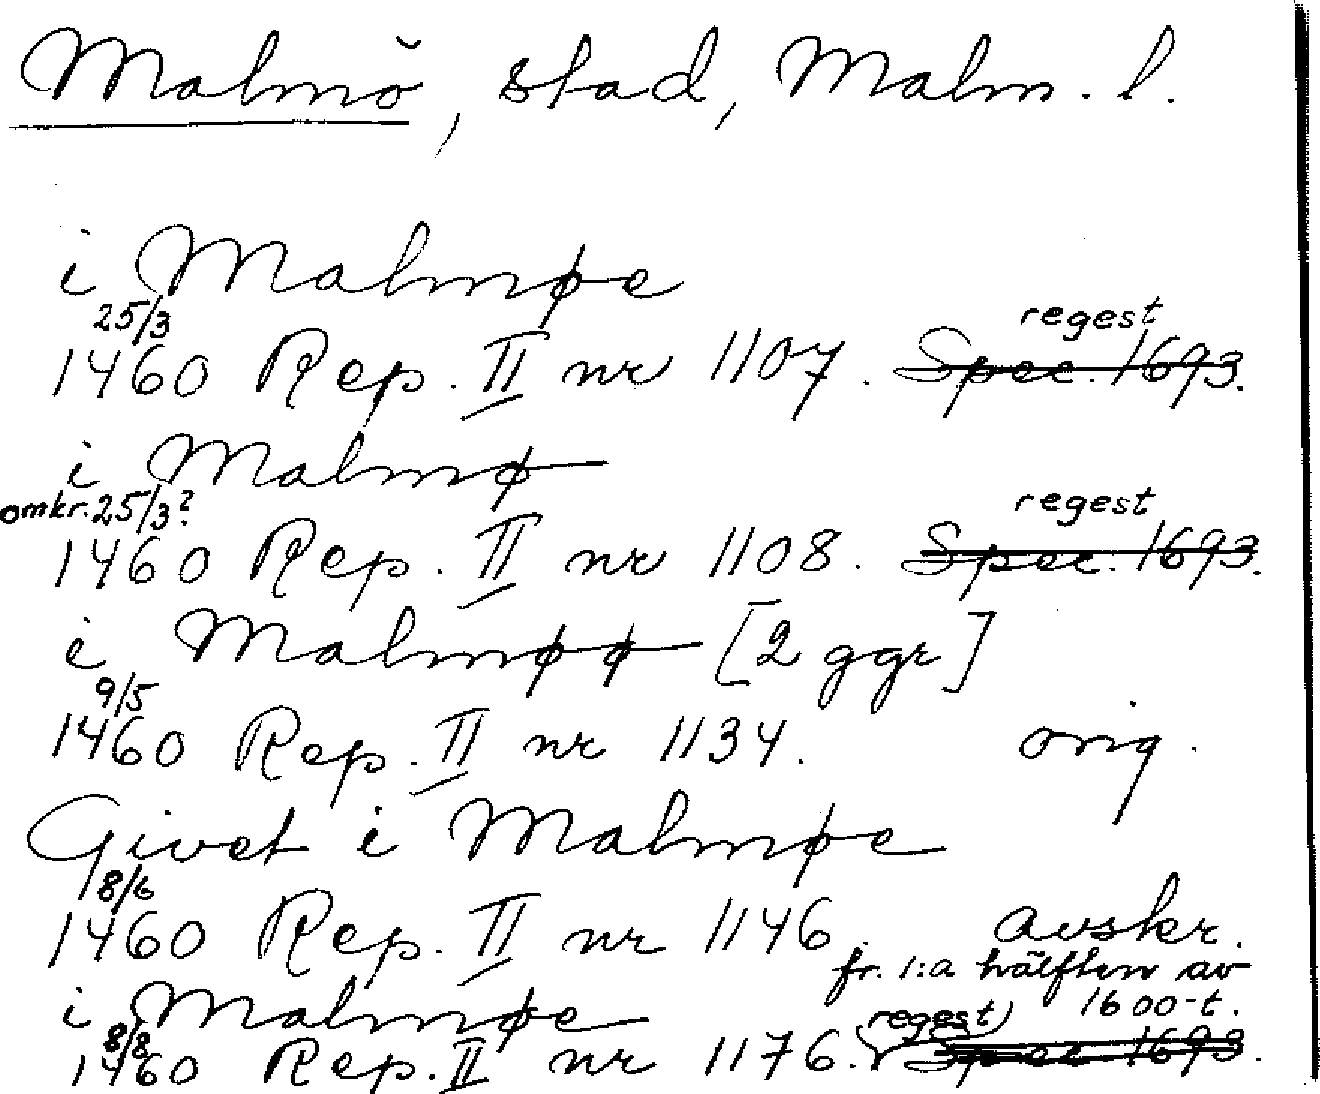 Malmö, stad, Malm. l.
i Malmøe
25/3 regest
1460 Rep. II nr 1107. Spec. 1693.
i Malmø
omkr. 25/3? regest
1460 Rep. II nr 1108. Spec. 1693.
i Malmøø [2 ggr]
9/5
1460 Rep. II nr 1134. orig.
Givet i Malmøe
18/6
1460 Rep. II nr 1146. avskr.
fr. 1:a hälften av
i Malmøe regest) 1600-t.
8/8
1460 Rep. II nr 1176. Spec 1693.